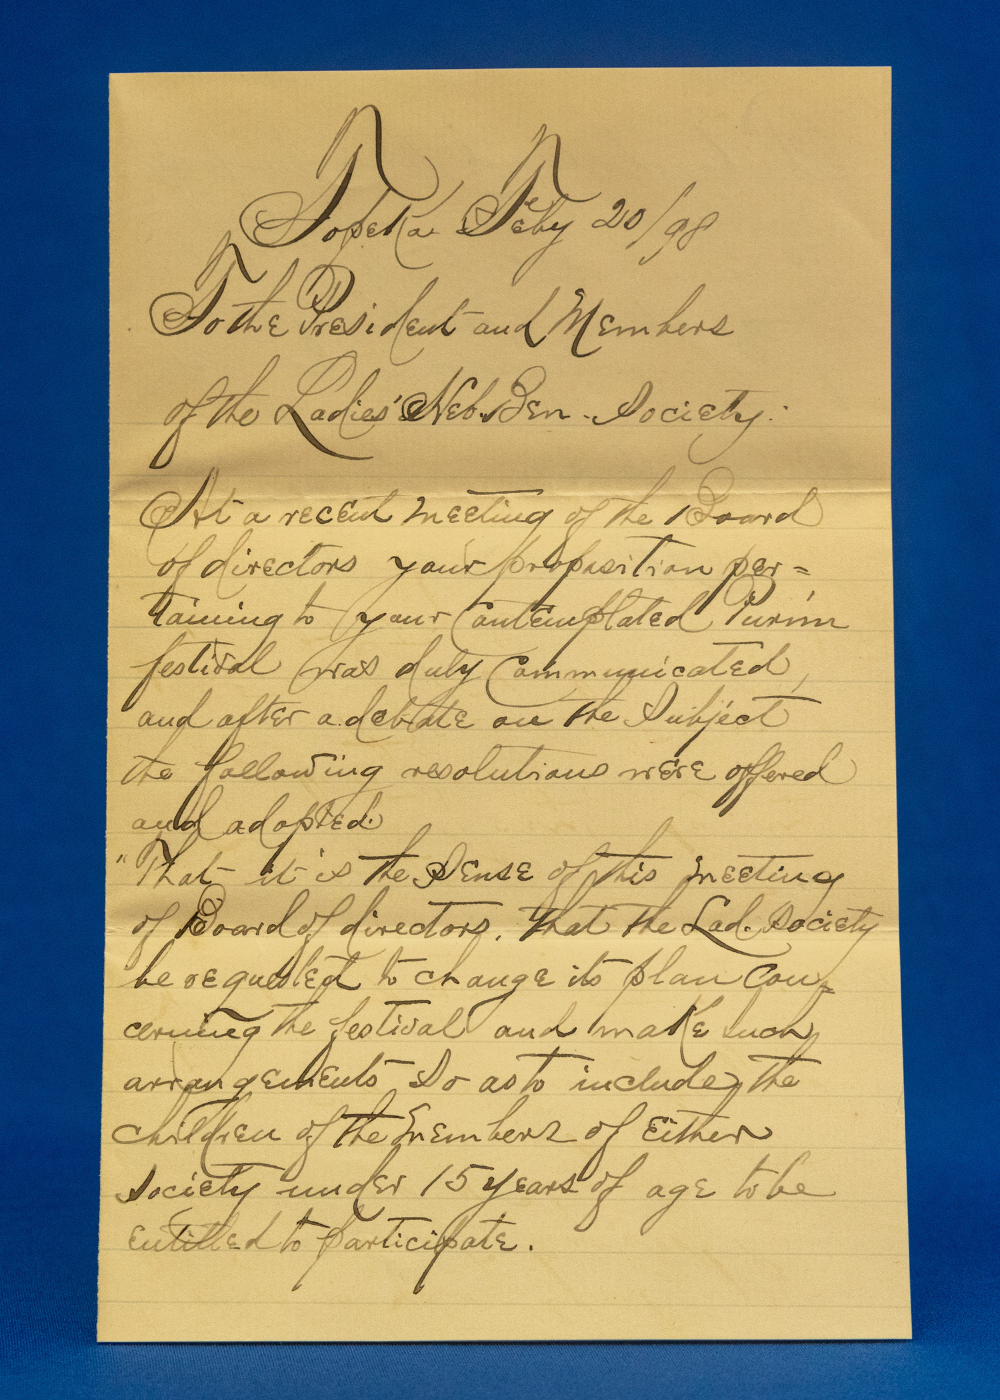 Topeka Feby 20/98
To the President and Members
of the Ladies' Heb. Ben. Society:
At a recent meeting of the Board
of directors your proposition per=
taining to your contemplated Purim
festival was duly communicated,
and after a debate on the Subject
the following resolutions were offered
and adopted.
"That it is the Sense of this meeting
of Board of directors, that the Lad. Society
be requested to change its plan con-
cerning the festival and make such
arrangements so as to include the
children of the members of Either
Society under 15 years of age to be
entitled to participate.